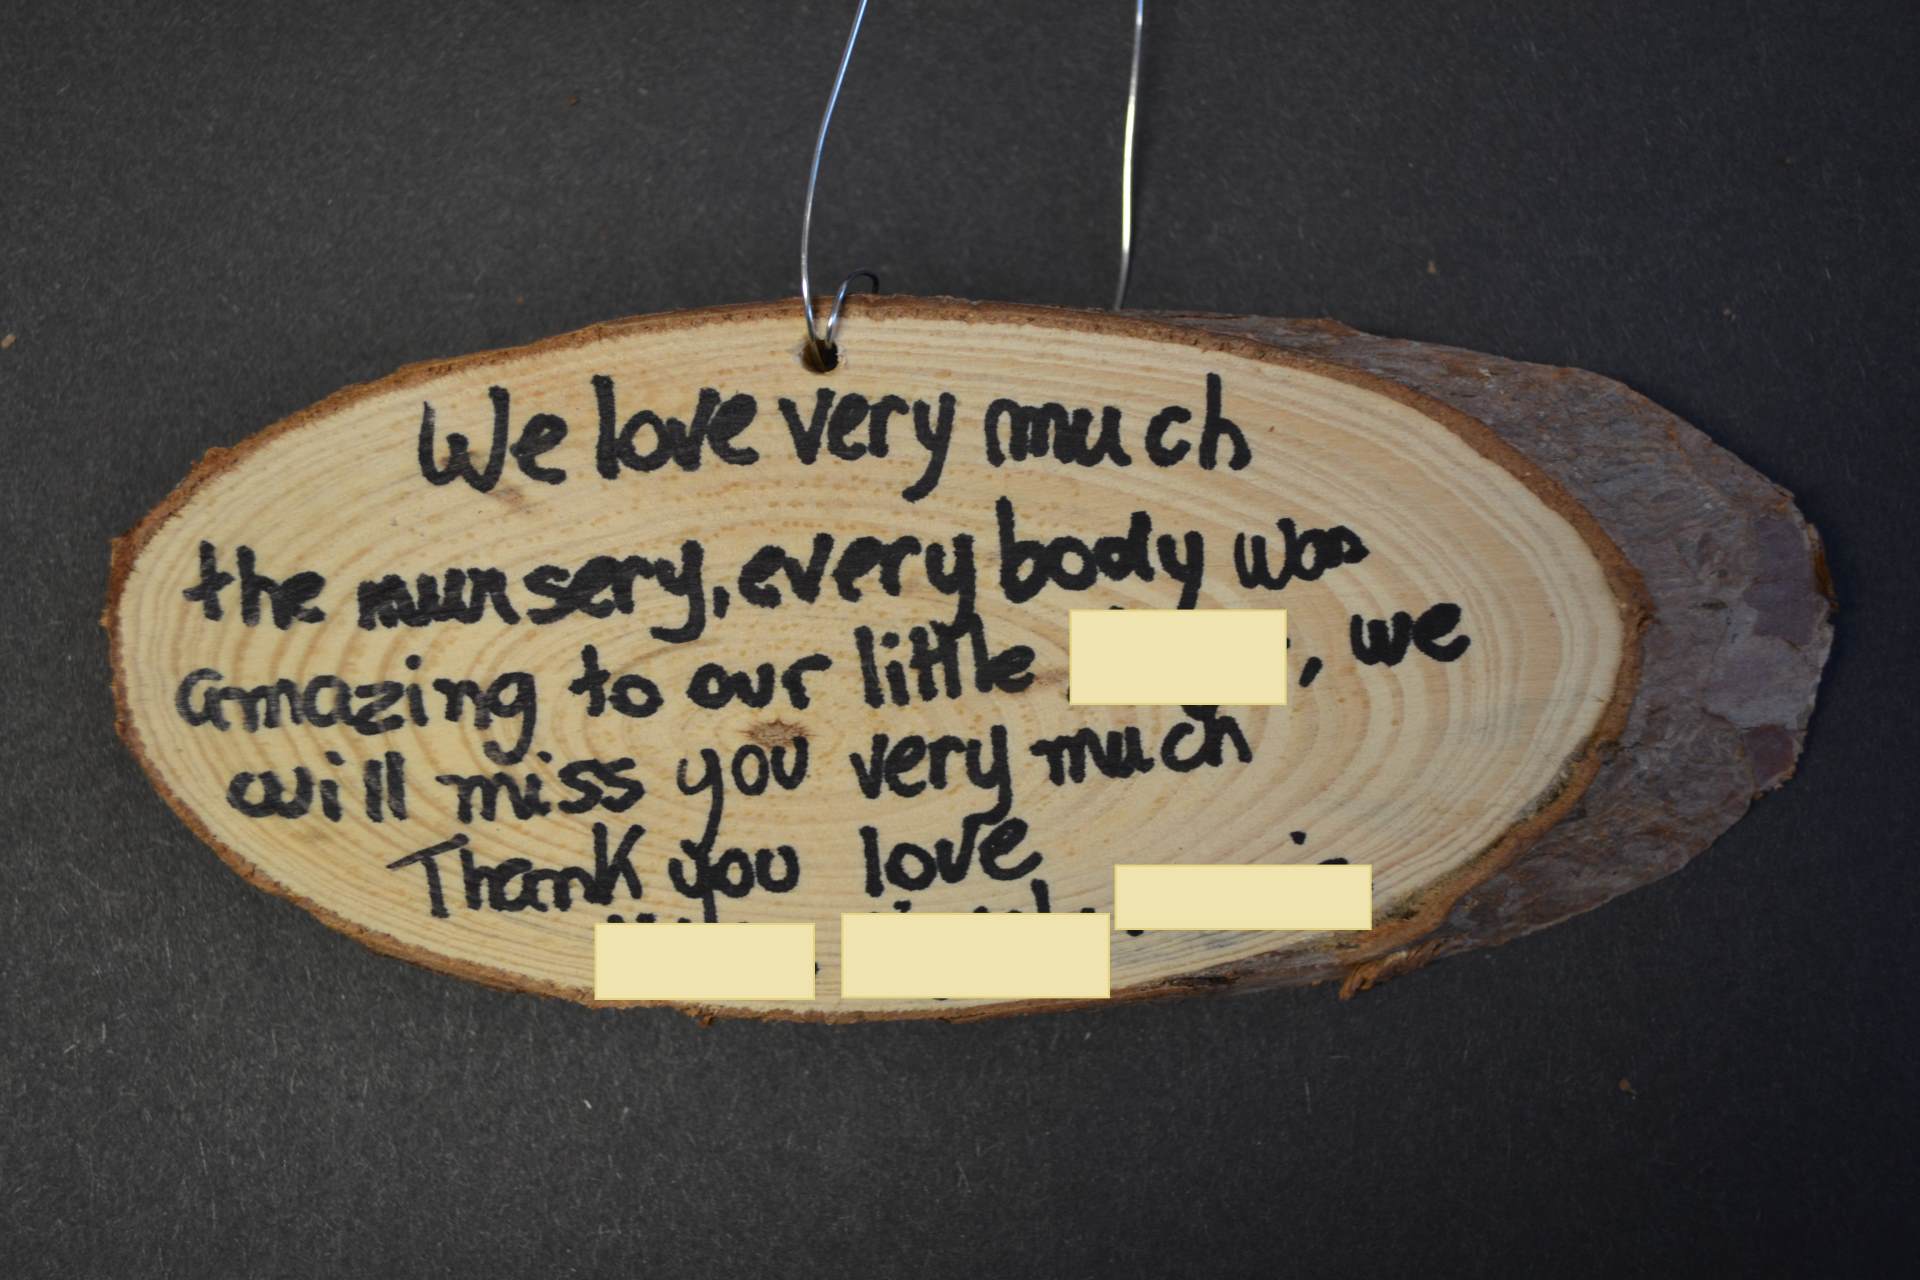 We love very much
the nunsery, every body was
amazing to our little , we
will miss you very much
Thank you love